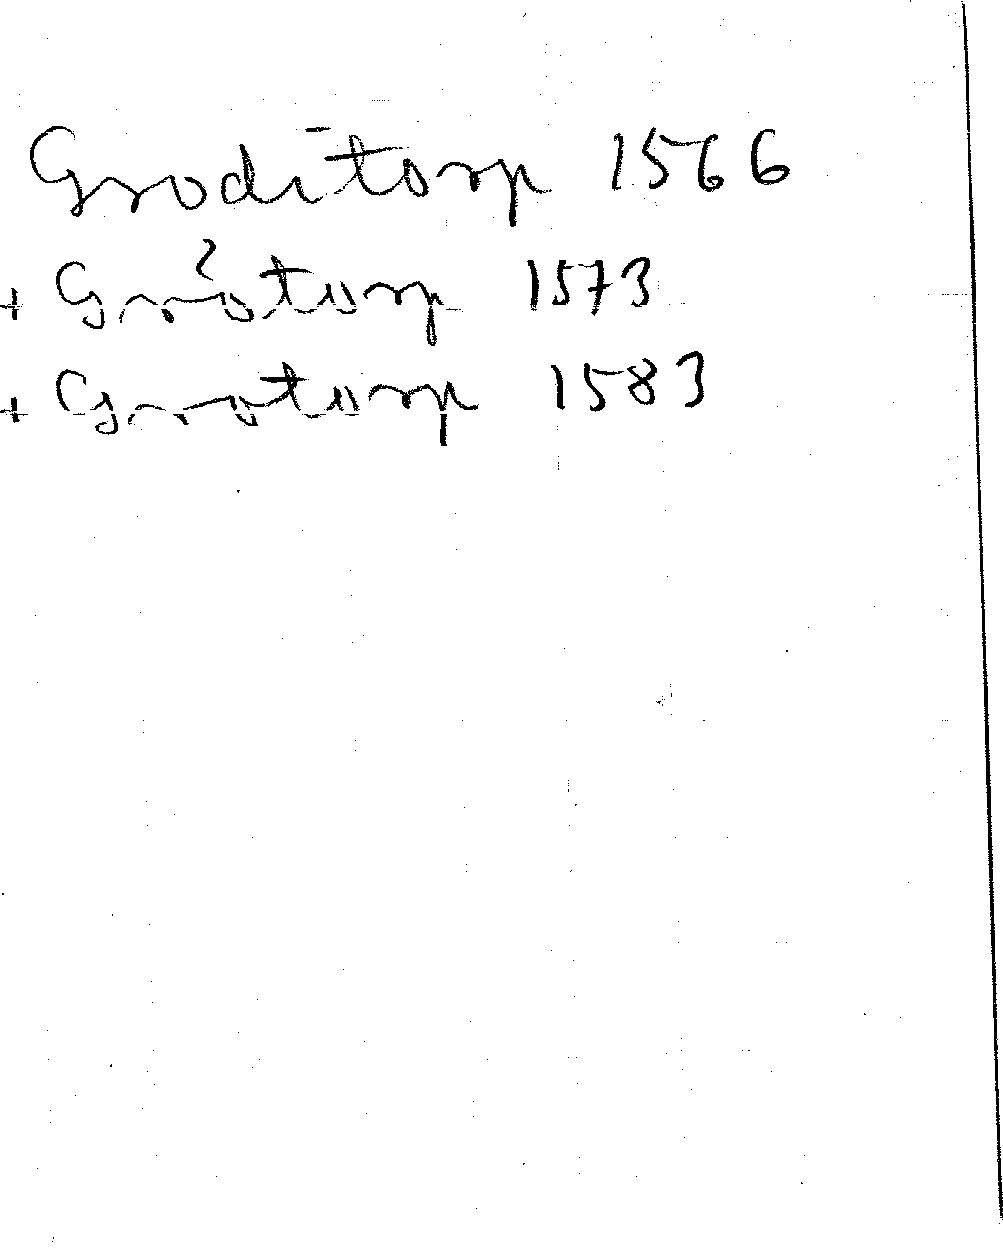 Groditorp 1566
+ Grotorp 1573
+ Grotorp 1583